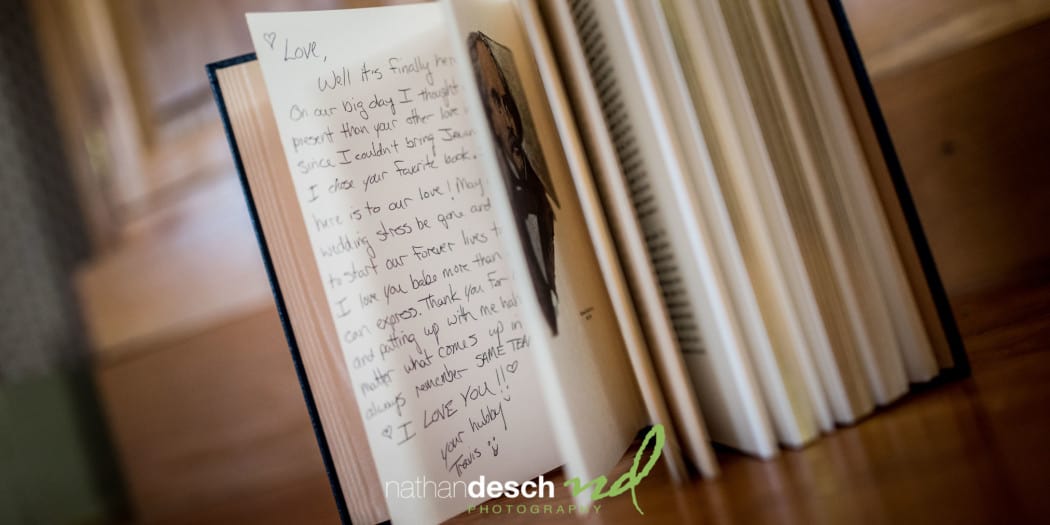 ♡ Love,
Well it is finally here
On our big day I thought
present than your other love
since I couldn't bring
I chose your favorite book.
here is to our love! May
wedding stress be gone and
to start our forever lives to
I love you babe more than
can express. Thank you for
and putting up with me
matter what comes up in
always remember SAME TEAM
♡ I LOVE YOU!! ♡
your hubby
Travis
nathandesch nd
PHOTOGRAPHY